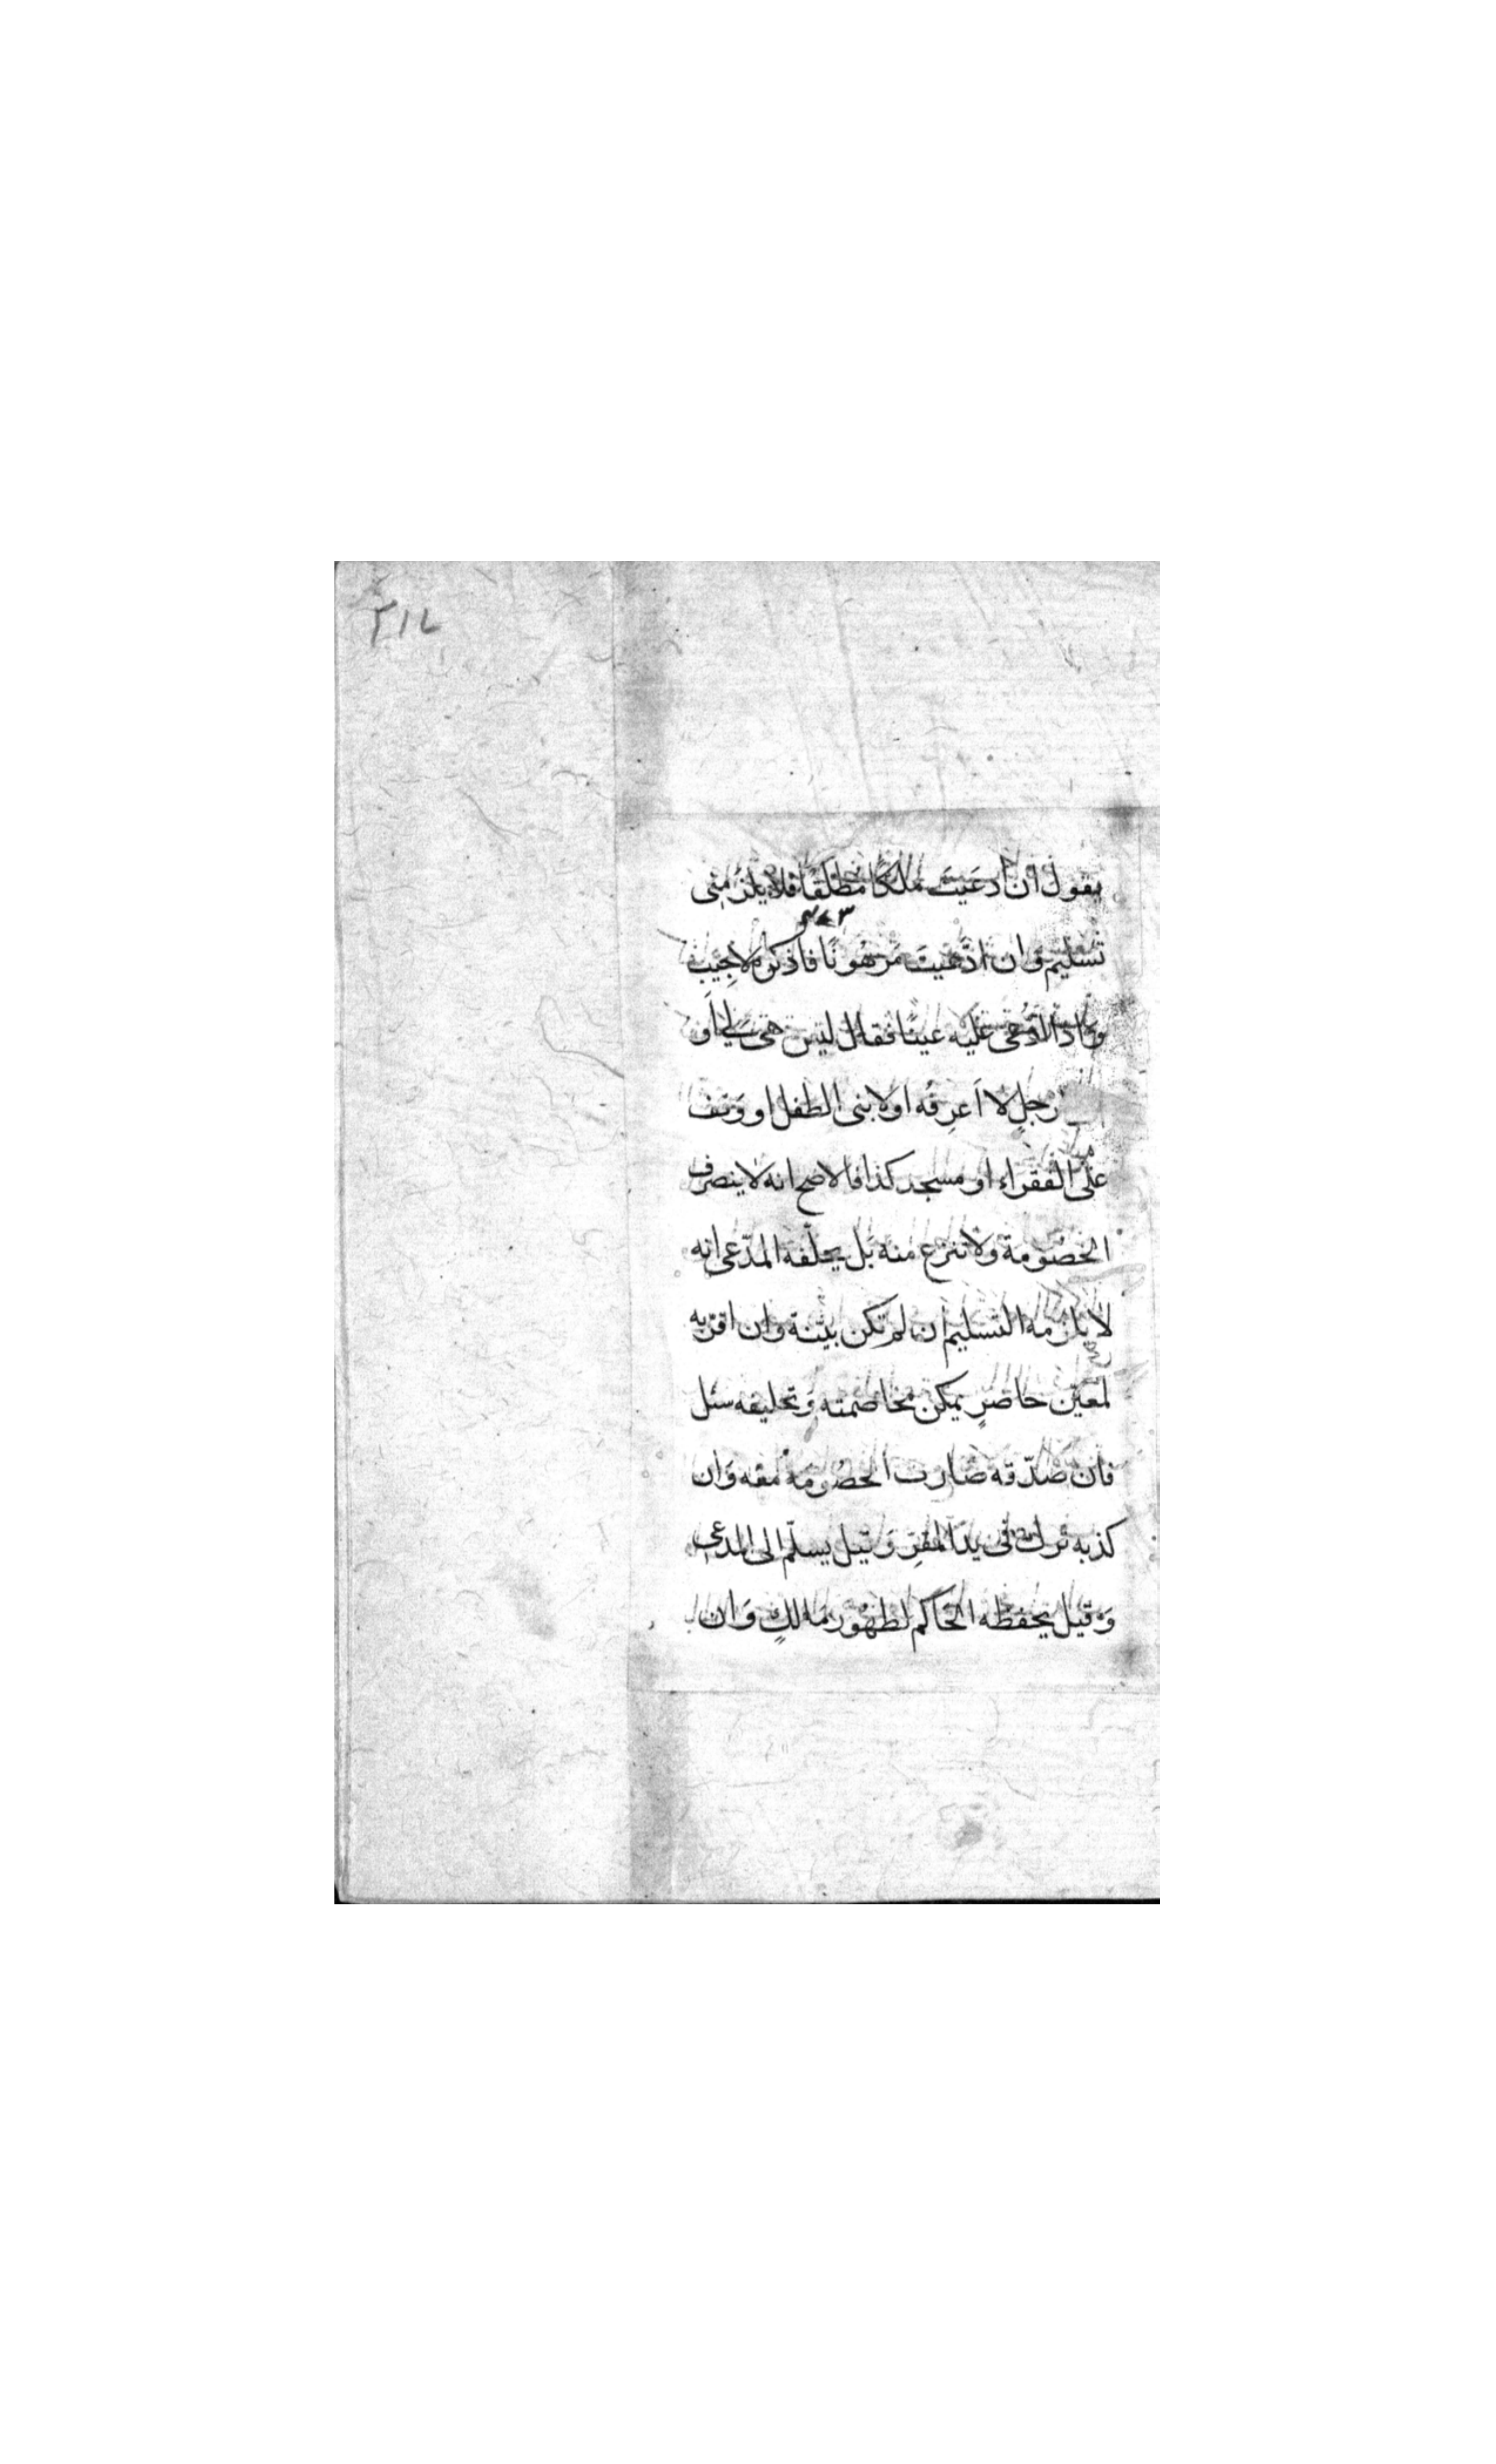 ٢١٧
يقول ان ادعيتَ ملكًا مطلقًا فلا يلزمنى
تسليم وان ادّعيت مرهونًا فاذكره لاجيب
واذا ادّعى عليه عينًا فقال ليس هى لى او
رجلٍ لا اَعرفه او لابنى الطفل او وقف
على الفقراء او مسجد كذا فالاصح انه لا ينصرف
الخصومة ولا تنزع منه بل يحلّفه المدّعى انه
لا يلزمه التسليم ان لم تكن بيّنة وان اقرّ به
لمعيّن حاضرٍ يمكن مخاصمته وتحليفه سئل
فان صدّقه صارت الخصومة معه وان
كذبه ترك فى يد المقرّ وقيل يسلّم الى المدعى
وقيل يحفظه الحاكم لظهور مالكٍ وان